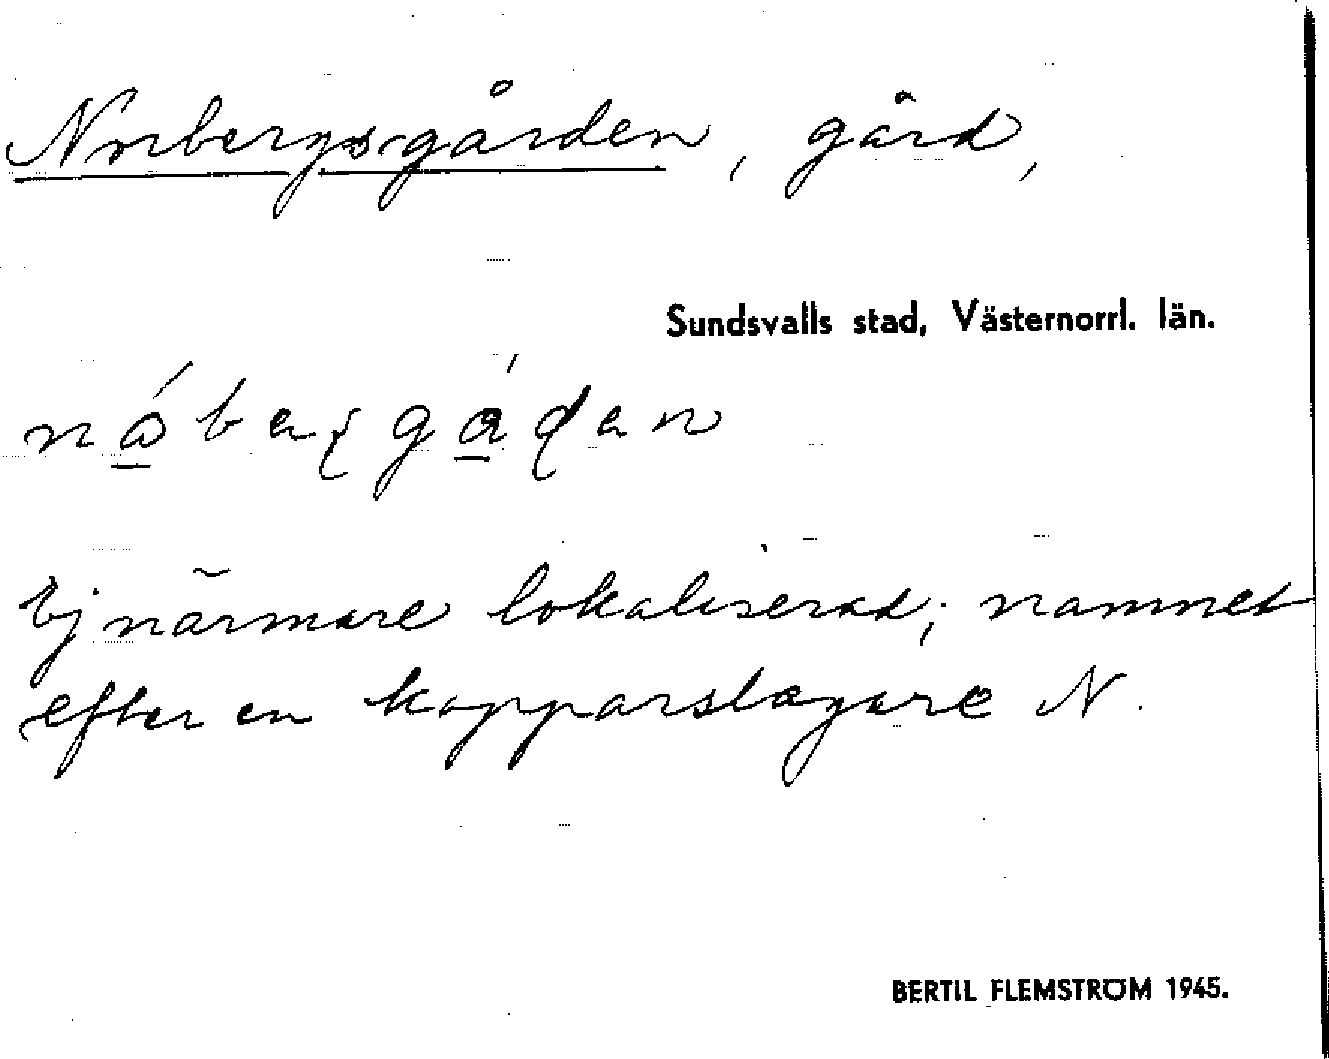 Norbergsgården, gård,
Sundsvalls stad, Västernorrl. län.
Ej närmare lokaliserad; namnet
efter en kopparslagare N.
BERTIL FLEMSTRÖM 1945.